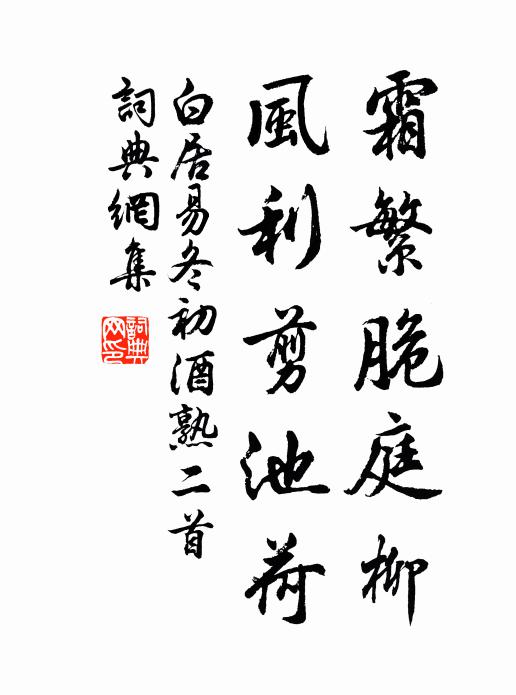 霜繁脆庭柳
風利剪池荷
白居易冬初酒熟二首
詞典網集
詞典網印